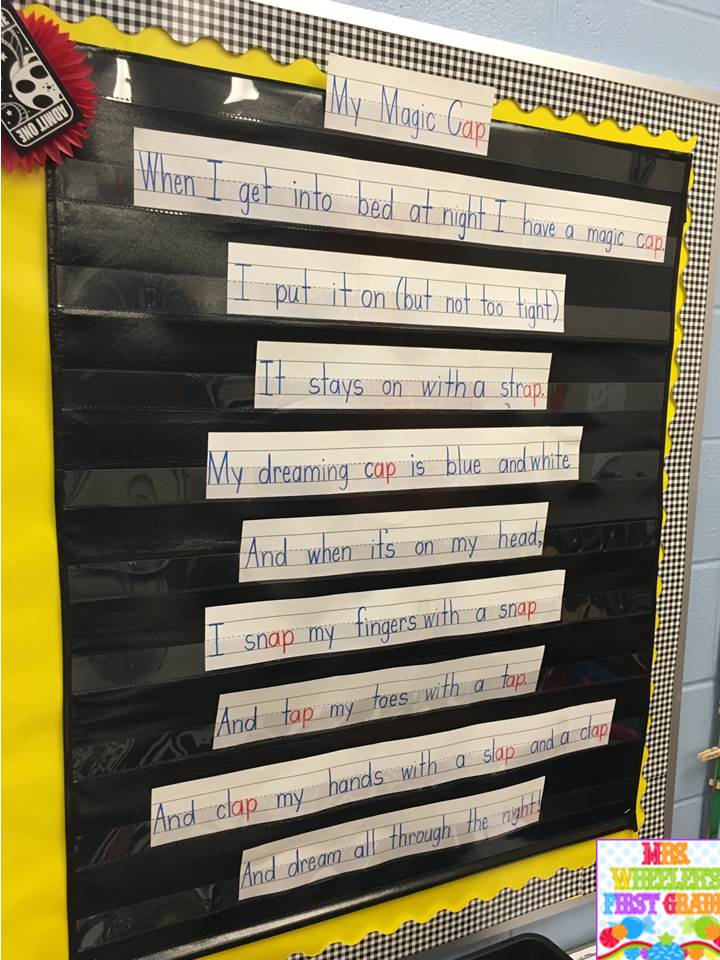 ADMIT ONE
My Magic Cap
When I get into bed at night I have a magic cap.
I put it on (but not too tight)
It stays on with a strap.
My dreaming cap is blue and white
And when it's on my head,
I snap my fingers with a snap
And tap my toes with a tap.
And clap my hands with a slap and a clap
And dream all through the night!
MRS.
WHEELER'S
FIRST GRADE